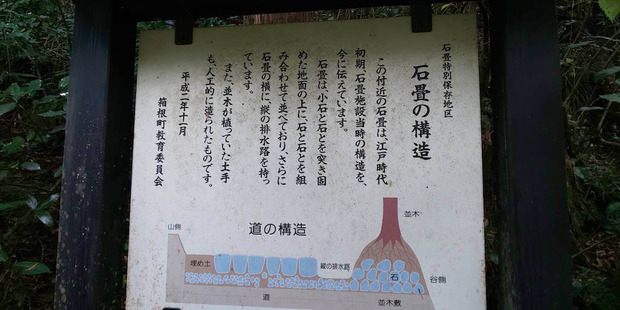 石畳特別保存地区
石畳の構造
この付近の石畳は、江戸時代
初期、石畳施設当時の構造を、
今に伝えています。
石畳は、小石と石とを突き固
めた地面の上に、石と石とを組
み合わせて並べており、さらに
石畳の横に、縦の排水路を持っ
ています。
また、並木が植っていた土手
も、人工的に造られたものです。
平成二年十一月
箱根町教育委員会
道の構造
山側
埋め土
縦の排水路
並木
石
谷側
道
並木敷